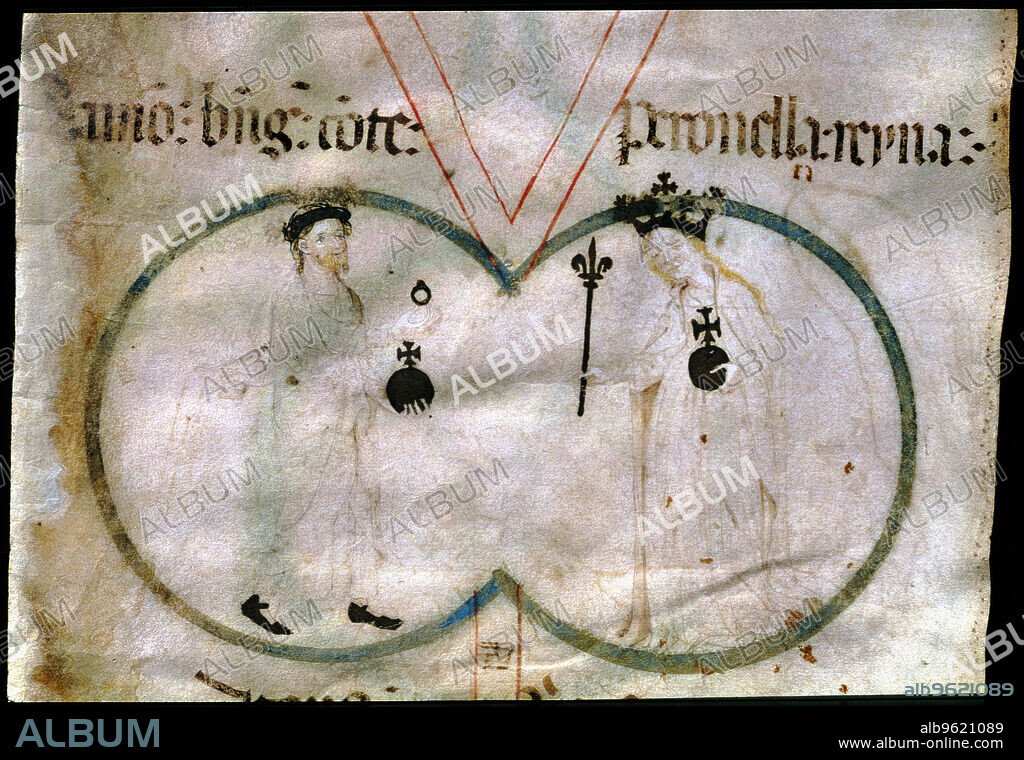 bñg: cōte:
peronella: reyna:
ALBUM
alb9621089
ALBUM
alb9621089
www.album-online.com